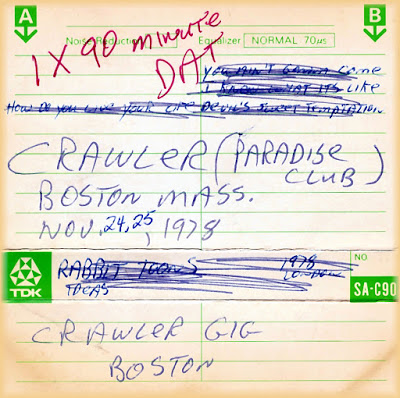 A
B
Noise Reduction
Equalizer NORMAL 70µs
1 X 90 minute
DAT
YOU AIN'T GONNA COME
I KNEW WHAT ITS LIKE
HOW DO YOU LIVE YOUR LIFE DEVIL'S SWEET TEMPTATION
CRAWLER (PARADISE
CLUB)
BOSTON MASS.
NOV. 24, 25, 1978
RABBIT TOONS 1978
IDEAS LONDON
NO
TDK
SA-C90
CRAWLER GIG
BOSTON